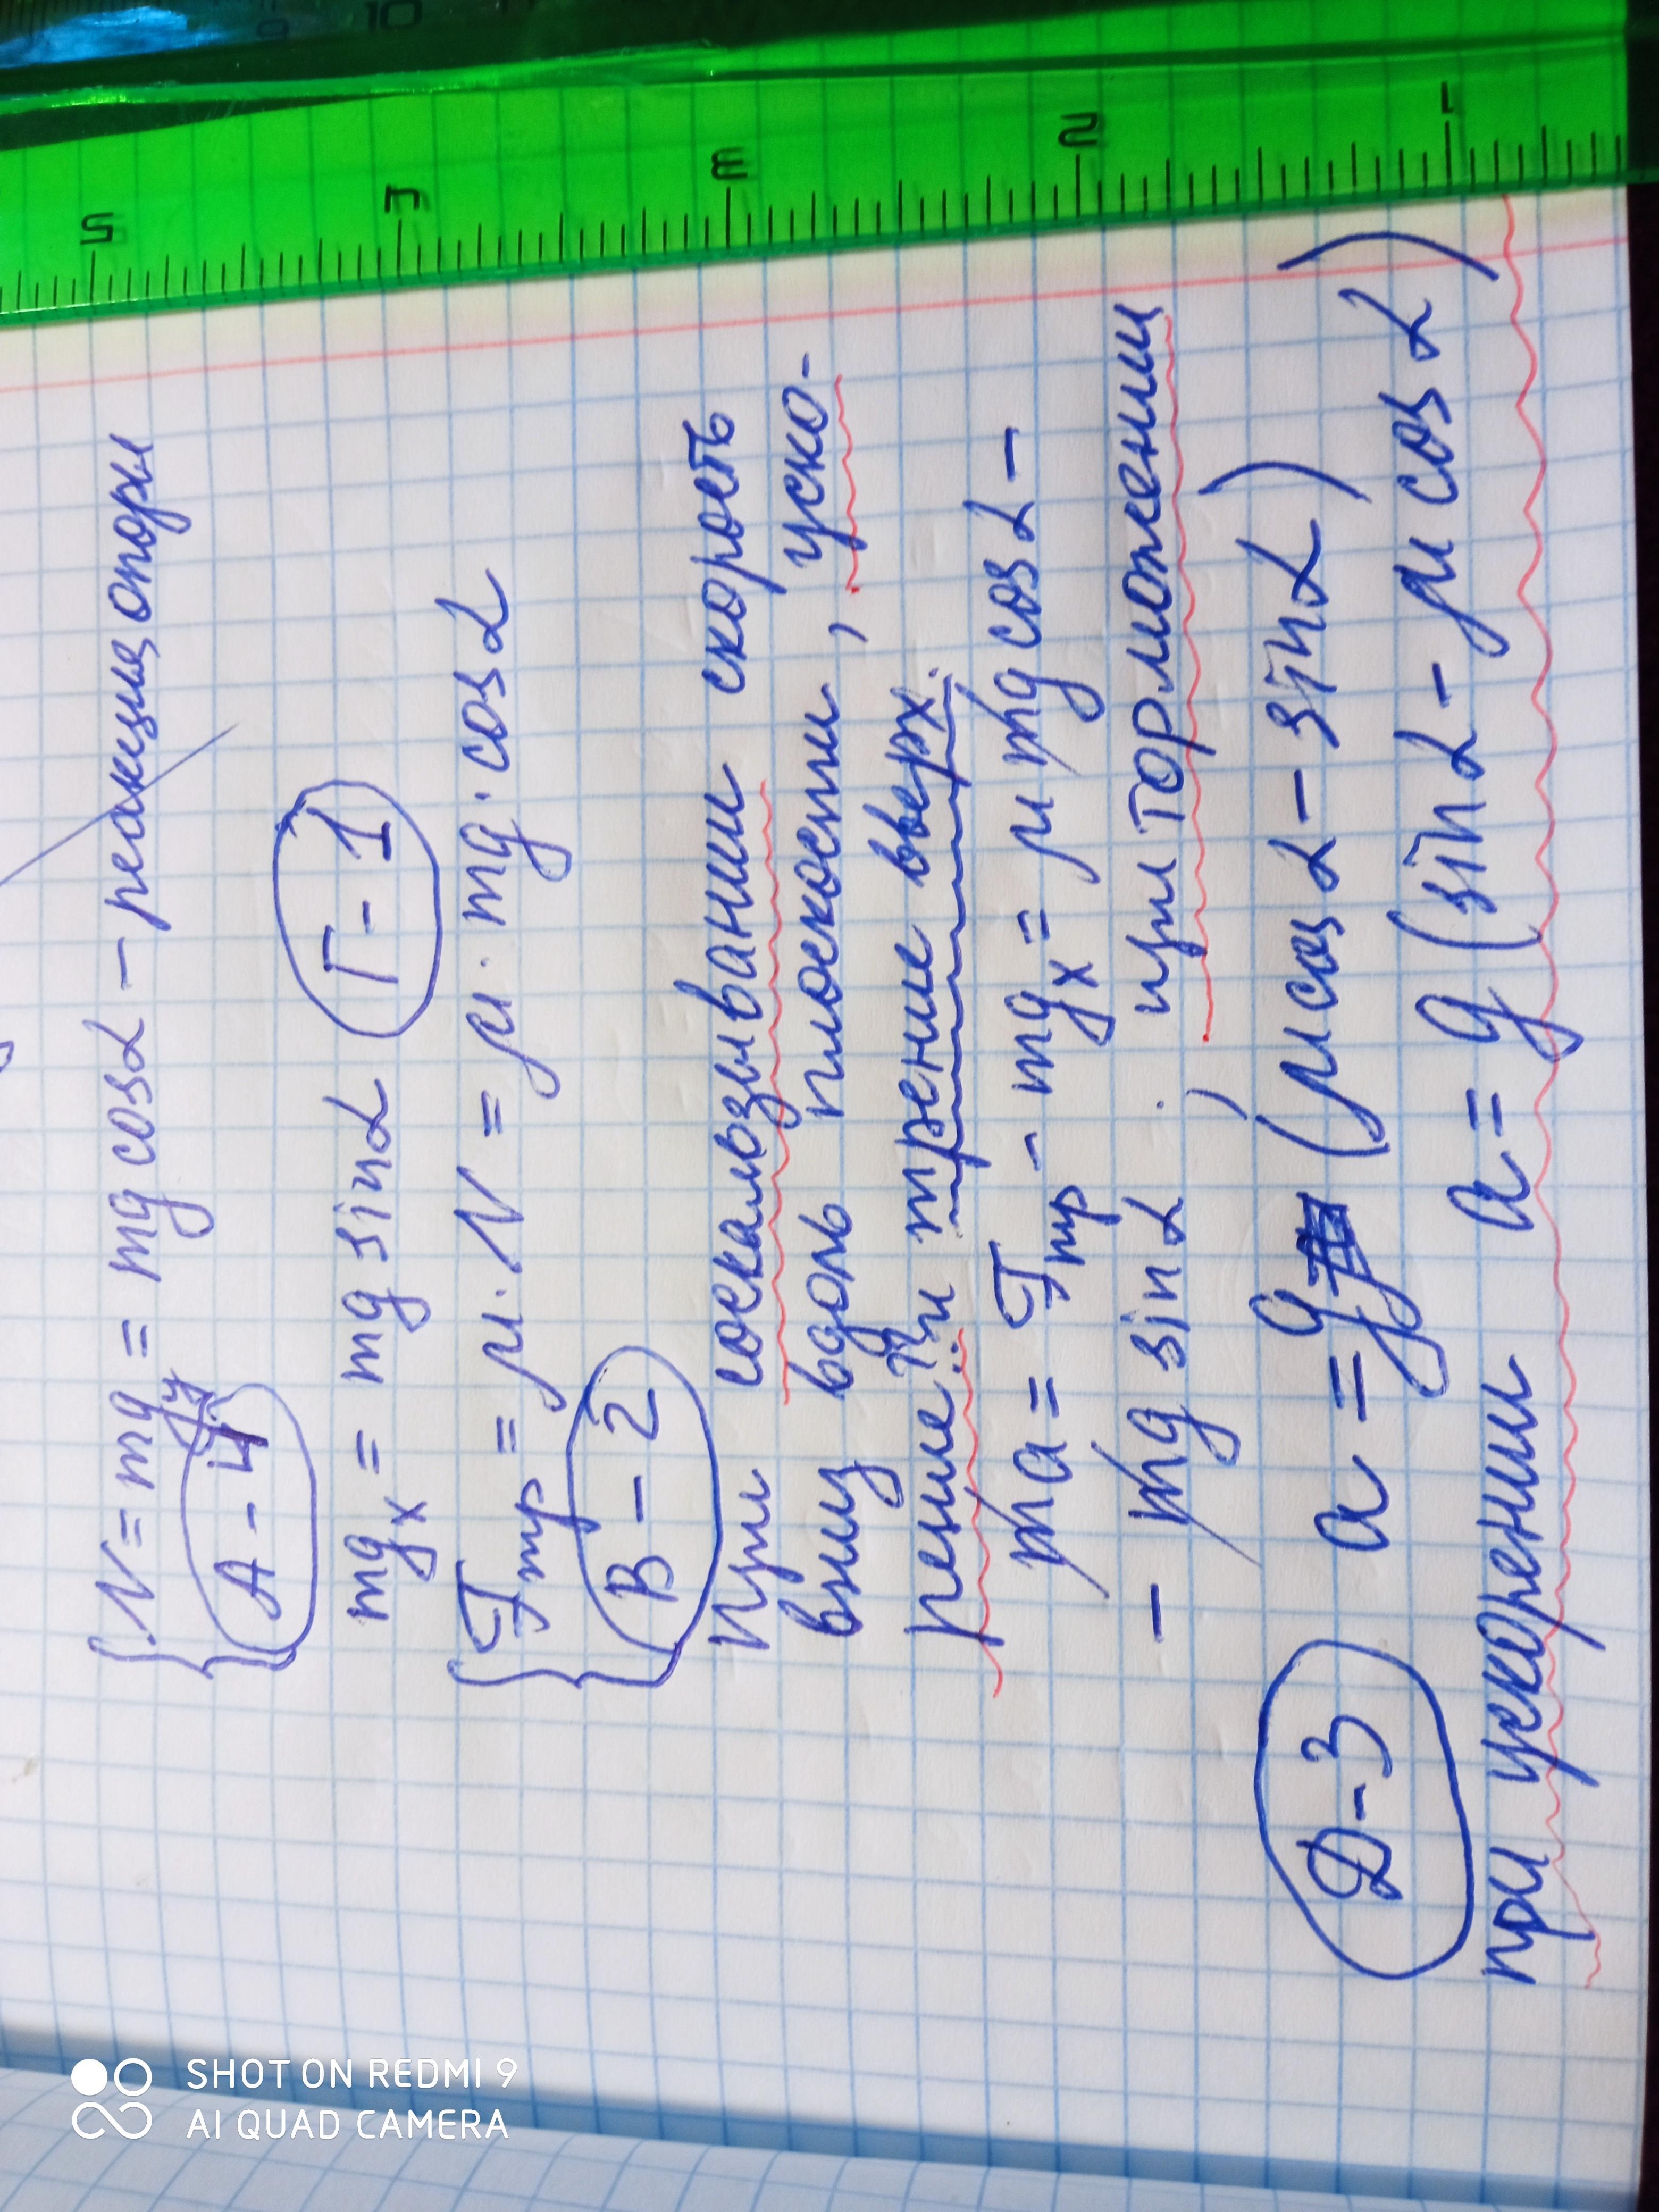 N = mg_y = mg cosα – реакция опоры
А - 4
mg_x = mg sinα Г - 1
F_тр = μ·N = μ·mg·cosα
В - 2
При соскальзывании скорость
вниз вдоль плоскости, уско-
рение и трение вверх.
ma = F_тр - mg_x = μmg cosα -
- mg sinα, при торможении
Д - 3 a = g (μcosα - sinα)
при ускорении a = g (sinα - μcosα)
1 2 3 5
10
SHOT ON REDMI 9
AI QUAD CAMERA